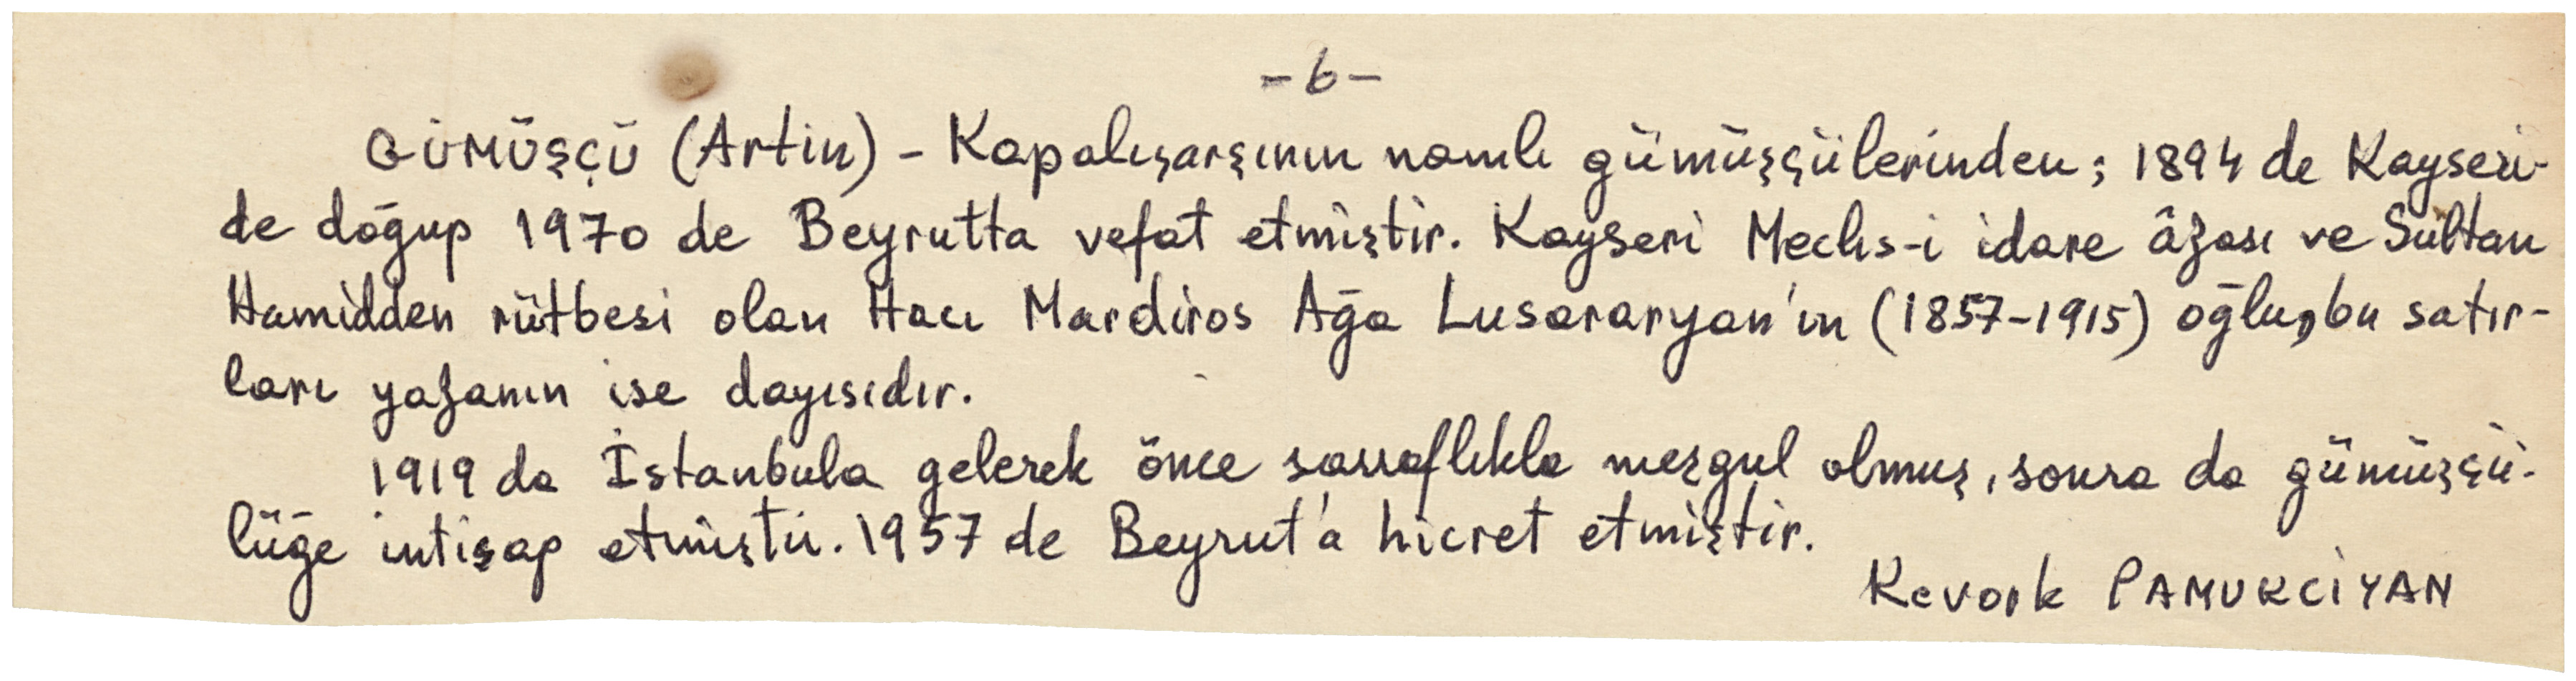 -6-
GÜMÜŞÇÜ (Artin) - Kapalışarşının namlı gümüşçülerinden; 1894 de Kayseri-
de doğup 1970 de Beyrutta vefat etmiştir. Kayseri Meclis-i idare âzası ve Sultan
Hamidden rütbesi olan Hacı Mardiros Ağa Lusararyan'ın (1857-1915) oğlu, bu satır-
ları yazanın ise dayısıdır.
1919 da İstanbula gelerek önce sarraflıkla meşgul olmuş, sonra da gümüşçü-
lüğe intisap etmiştir. 1957 de Beyrut'a hicret etmiştir.
Kevork PAMUKCİYAN